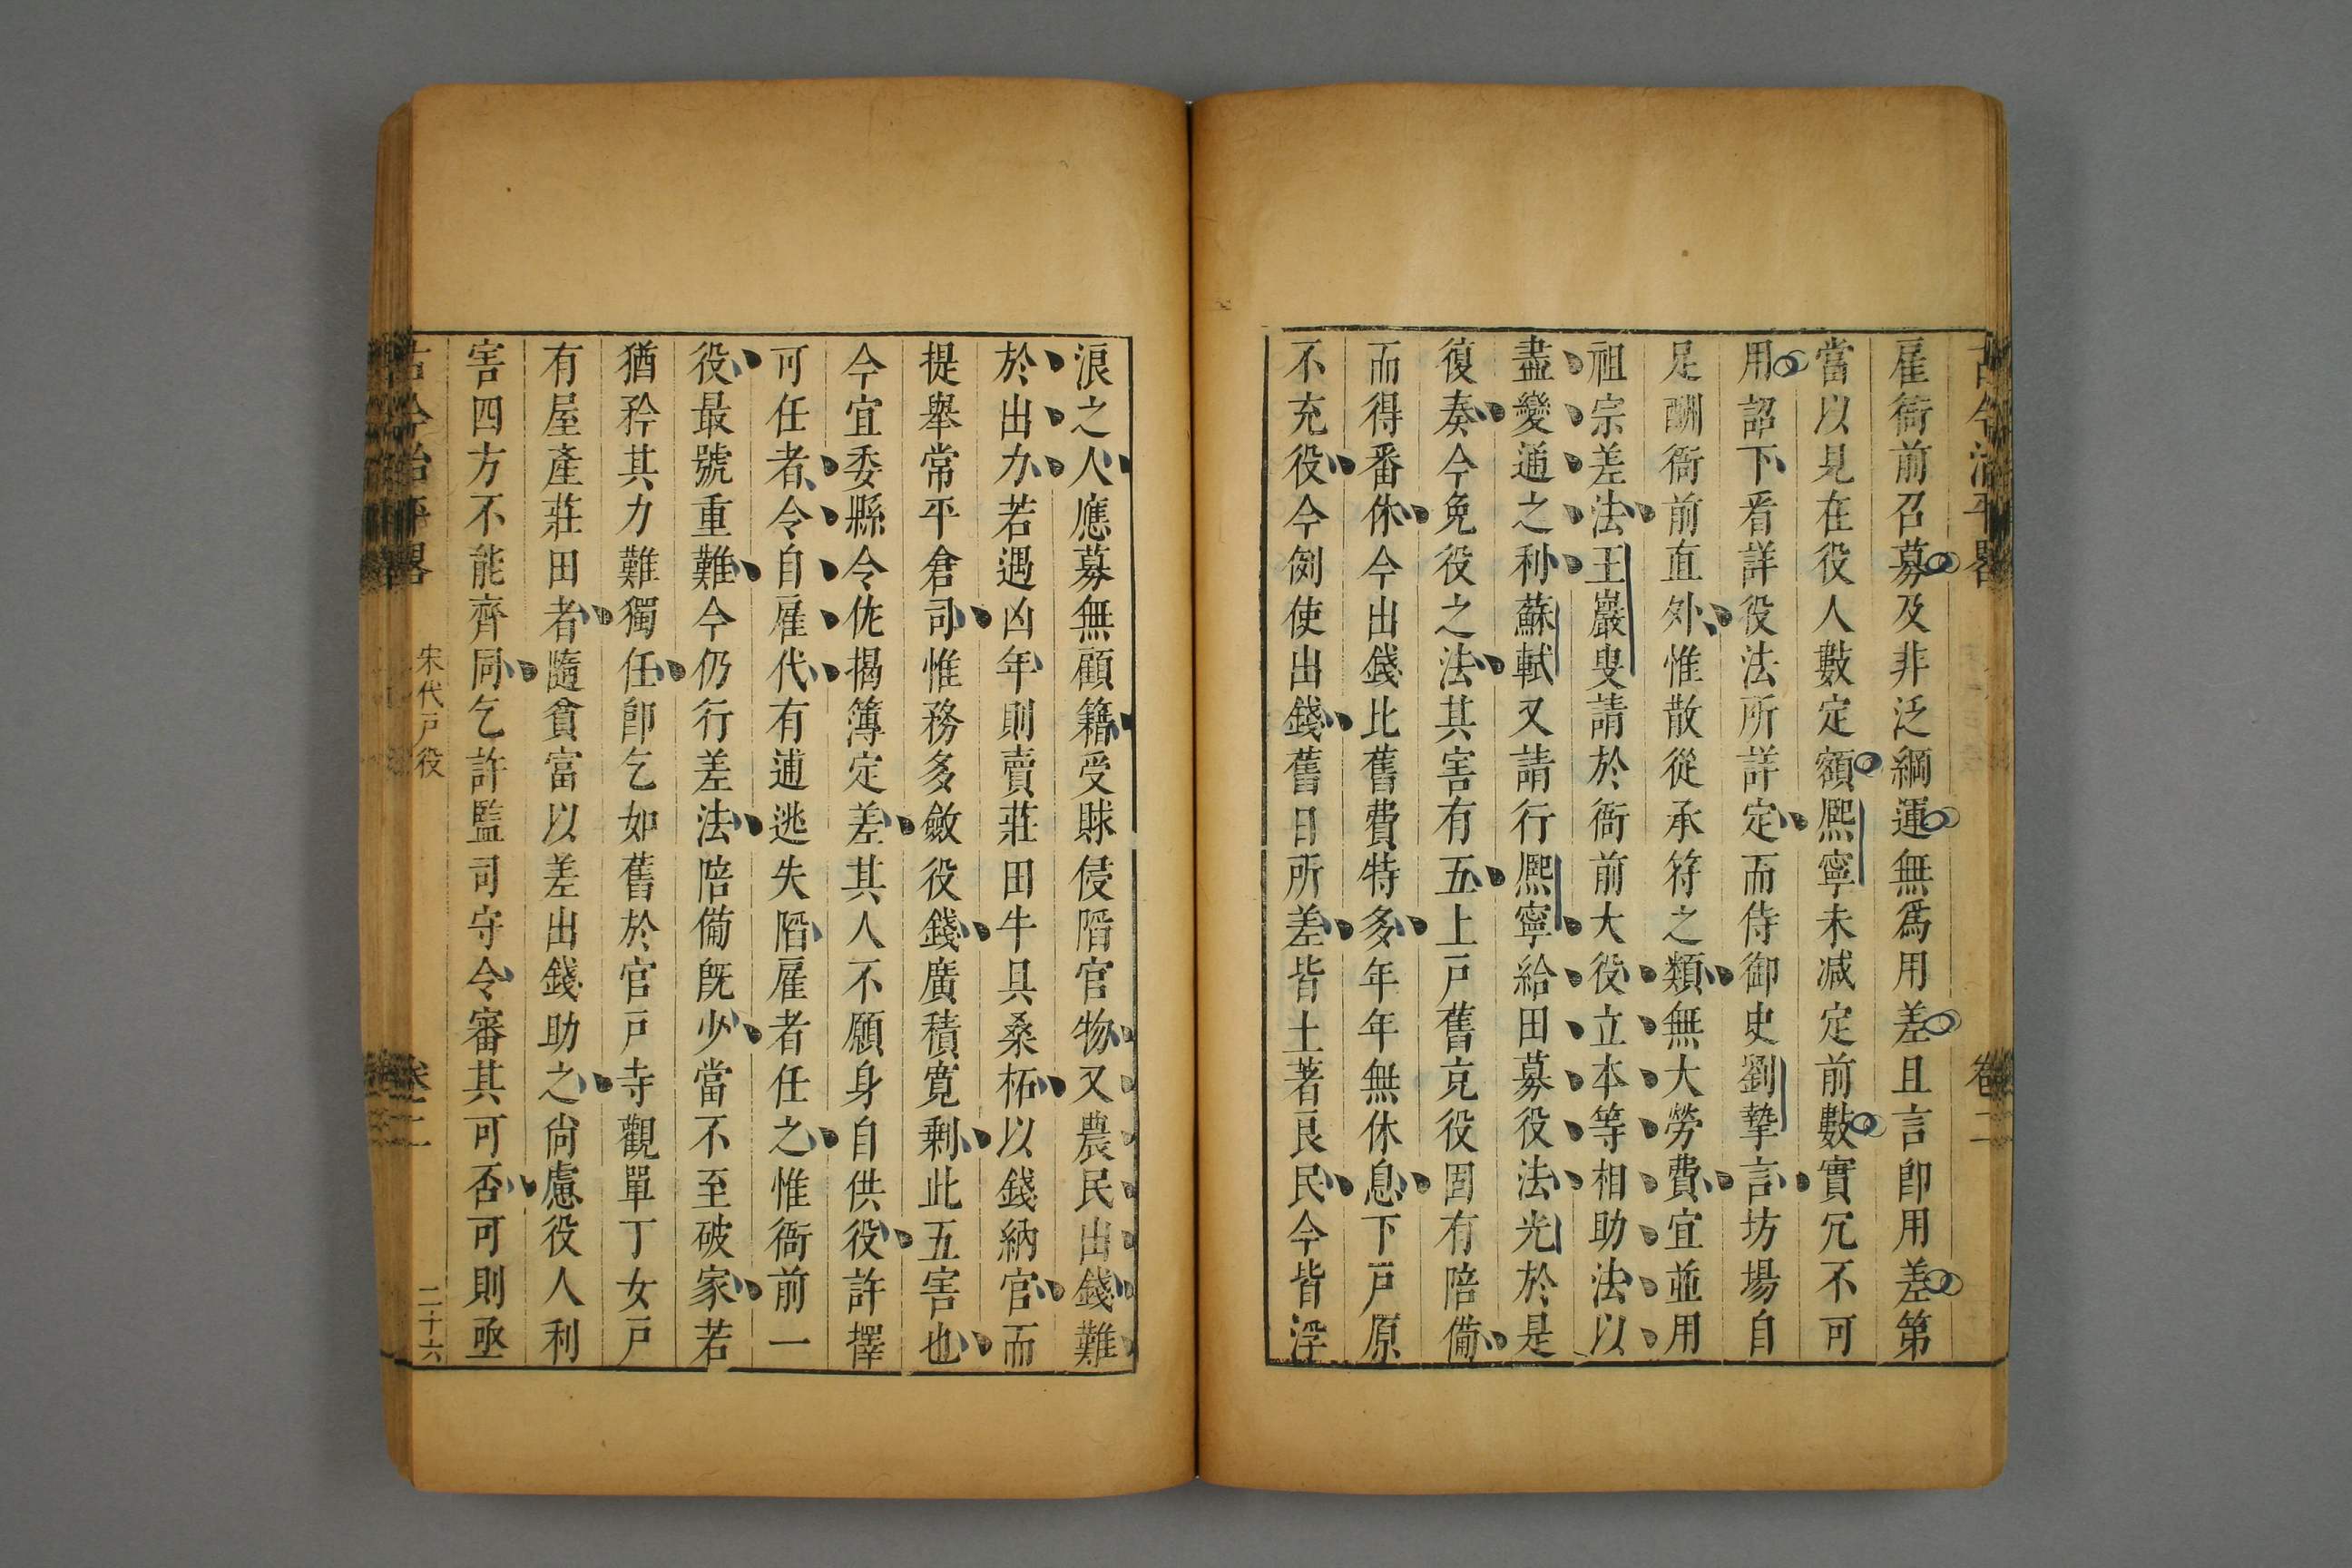 古今治平畧
卷二
雇衙前召募及非泛綱運無爲用差且言卽用差第
當以見在役人數定額熙寧未減定前數實冗不可
用詔下看詳役法所詳定而侍御史劉摯言坊場自
足酬衙前直外惟散從承符之類無大勞費宜並用
祖宗差法王巖叟請於衙前大役立本等相助法以
盡變通之利蘇軾又請行熙寧給田募役法光於是
復奏今免役之法其害有五上戸舊充役固有陪備
而得番休今出錢比舊費特多年年無休息下戸原
不充役今例使出錢舊日所差皆土著良民今皆浮
浪之人應募無顧籍受賕侵陷官物又農民出錢難
於出力若遇凶年則賣莊田牛具桑柘以錢納官而
提舉常平倉司惟務多斂役錢廣積寬剩此五害也
今宜委縣令佐揭簿定差其人不願身自供役許擇
可任者令自雇代有逋逃失陷雇者任之惟衙前一
役最號重難今仍行差法陪備旣少當不至破家若
猶矜其力難獨任卽乞如舊於官戸寺觀單丁女戸
有屋產莊田者隨貧富以差出錢助之尙慮役人利
害四方不能齊同乞許監司守令審其可否可則亟
古今治平畧
宋代戸役
卷二
二十六